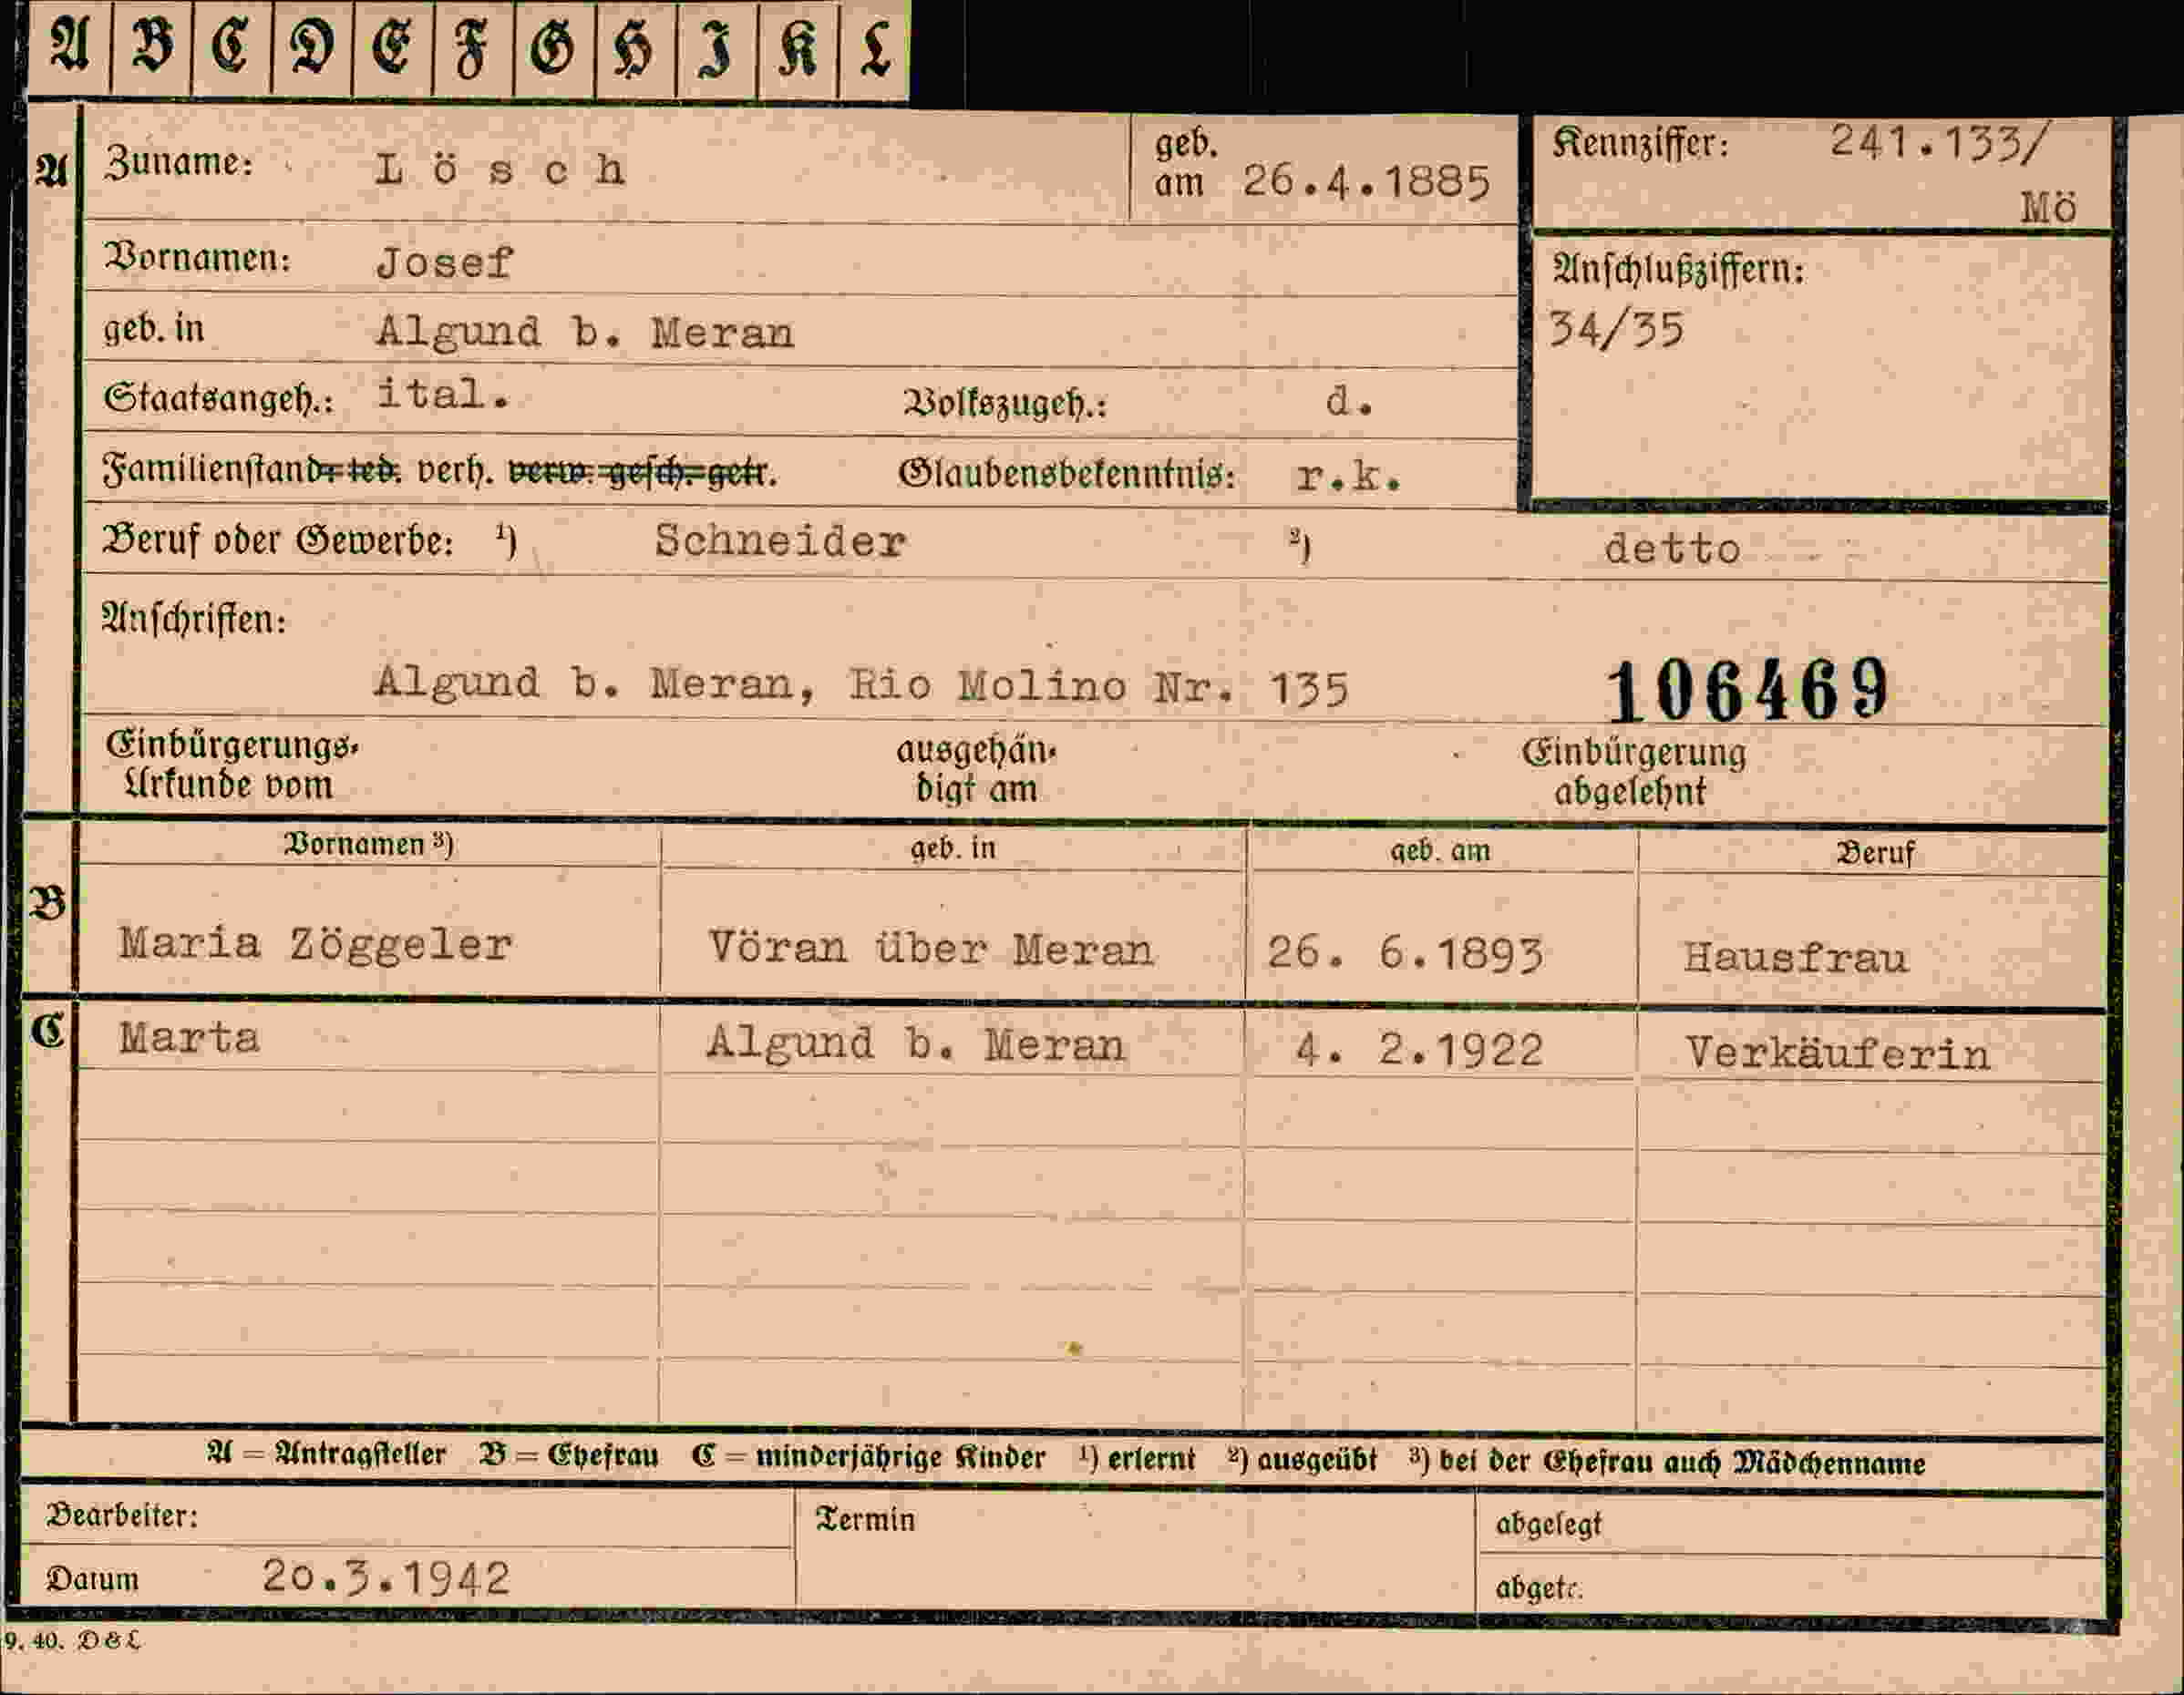 A B C D E F G H I K L
A Zuname: Lösch geb. am 26.4.1885 Kennziffer: 241.133/
Mö
Vornamen: Josef Anschlußziffern:
geb. in Algund b. Meran 34/35
Staatsangeh.: ital. Volkszugeh.: d.
Familienstand: led. verh. verw. gesch. getr. Glaubensbekenntnis: r.k.
Beruf oder Gewerbe: ¹) Schneider ²) detto
Anschriften:
Algund b. Meran, Rio Molino Nr. 135 106469
Einbürgerungs- ausgehän- Einbürgerung
Urkunde vom digt am abgelehnt
Vornamen ³) geb. in geb. am Beruf
B
Maria Zöggeler Vöran über Meran 26. 6.1893 Hausfrau
C Marta Algund b. Meran 4. 2.1922 Verkäuferin
A = Antragsteller B = Ehefrau C = minderjährige Kinder ¹) erlernt ²) ausgeübt ³) bei der Ehefrau auch Mädchenname
Bearbeiter: Termin abgelegt
Datum 20.3.1942 abgetr.
9. 40. D & L